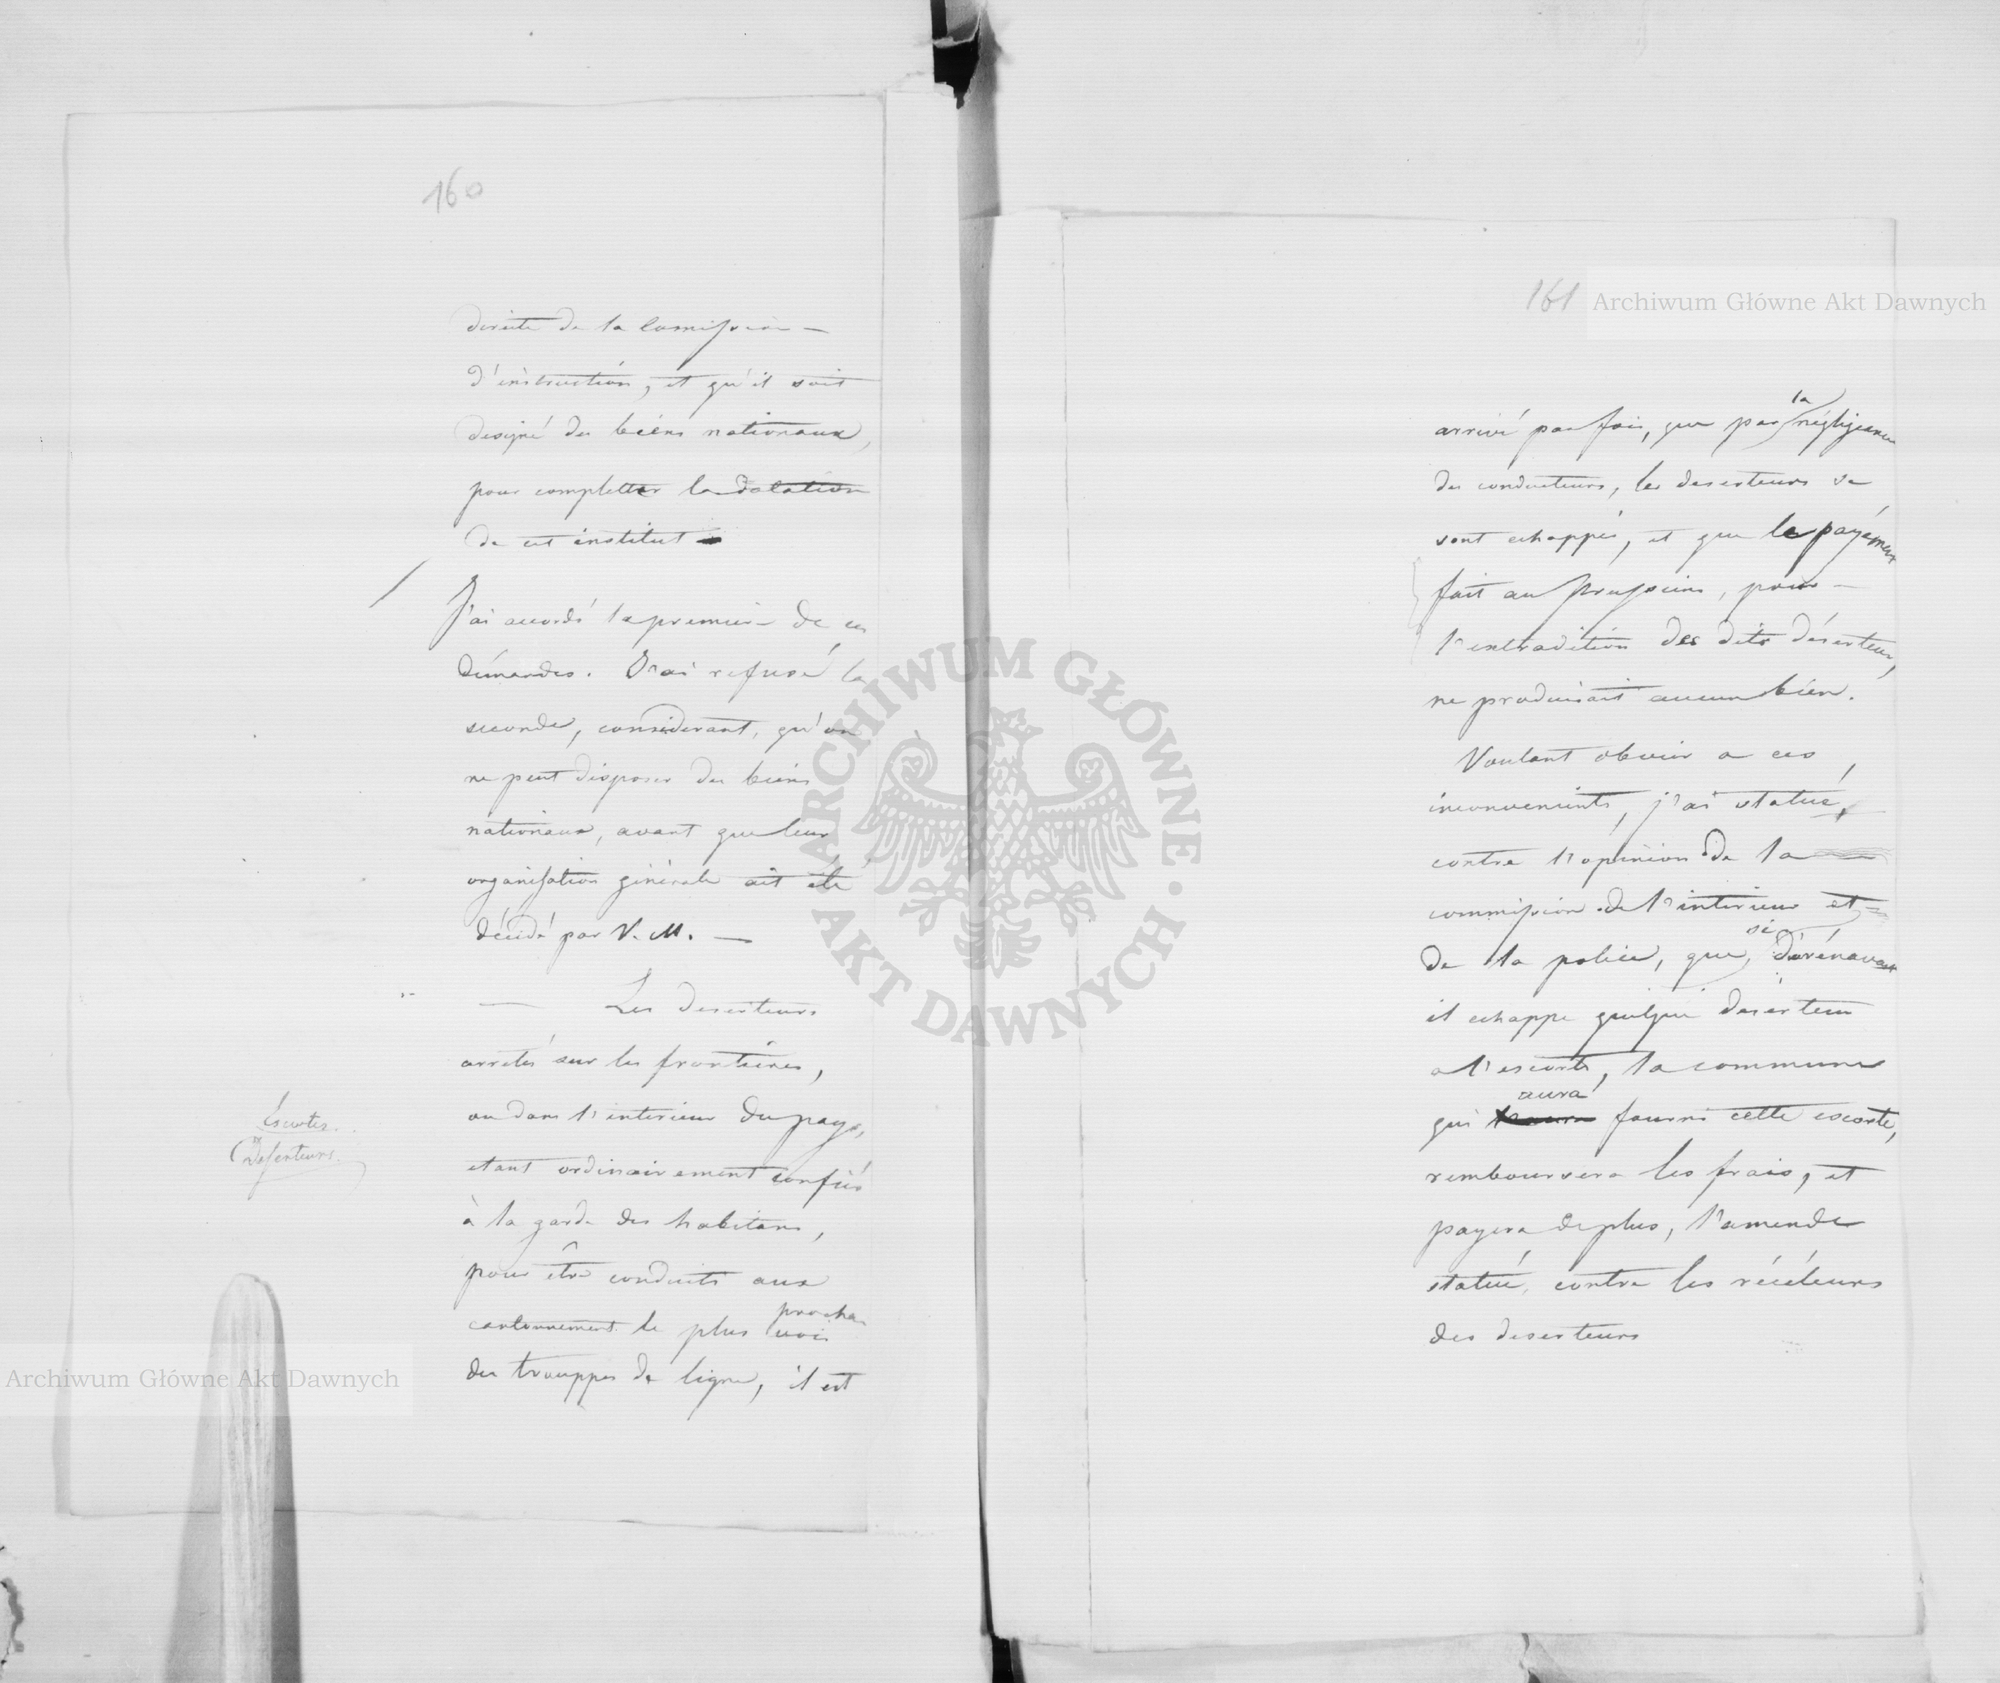 160
direite de la Comission —
d'instruction, et qu'il soit
designé des biéns nationaux,
pour completter la dotation
de cet institut
J'ai accordé la premiere de ces
démandes. J'ai refusé la
seconde, considerant, qu'on
ne peut disposer des biéns
nationaux, avant que leur
organisation générale ait été
décidé par V. M. —
— Les deserteurs
arretés sur les frontiéres,
ou dans l'interieur du pays,
etant ordinairement confiés
à la garde des habitans,
pour être conduits aux
prochain
cantonnement le plus voisi
des trouppes de ligne, il est
Escortes
Deserteurs
161
la
arrivé par fois, que par négligence
des conducteurs, les deserteurs se
sont echappés, et que le payément
fait au Prussiens, pour —
l'extradition des dits déserteurs,
ne produisait aucun bien.
Voulant obvier a ces
inconvenients, j'ai statué,
contre l'opinion de la
commission de l'interieur et
si
de la police, que, dorénavant
il echappe quelque déserteur
a l'escorte, la commune
aura
qui fourni cette escorte,
remboursera les frais, et
payera de plus, l'amende
statué, contre les récéleurs
des deserteurs
Archiwum Główne Akt Dawnych
Archiwum Główne Akt Dawnych
ARCHIWUM GŁÓWNE AKT DAWNYCH